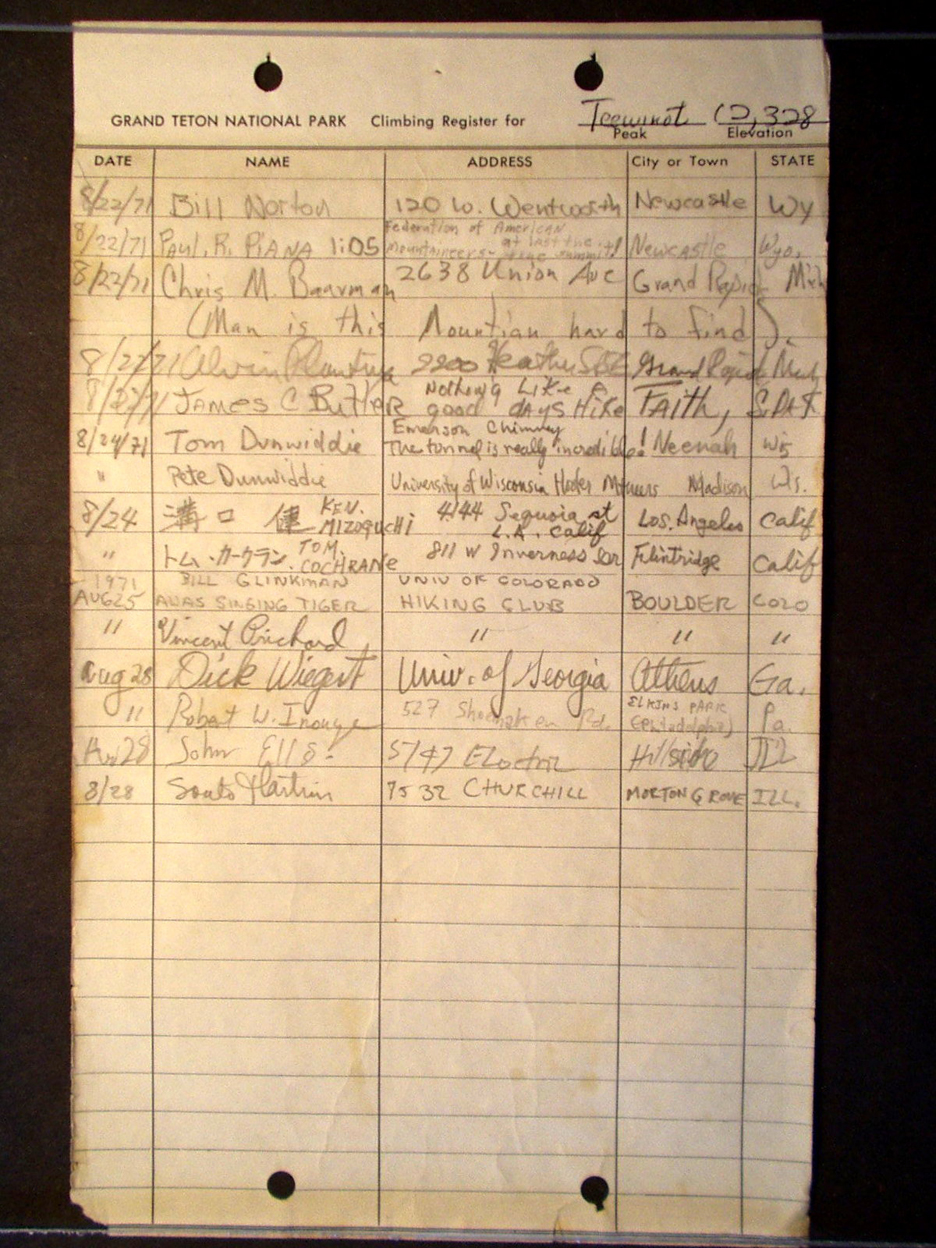 GRAND TETON NATIONAL PARK Climbing Register for Teewinot 12,328
Peak Elevation
DATE NAME ADDRESS City or Town STATE
8/22/71 Bill Norton 120 W. Wentworth Newcastle Wy
8/22/71 Paul. R. PIANA 1:05 Federation of American Mountaineers - at last the summit Newcastle Wyo.
8/22/71 Chris M. Baarman 2638 Union Ave Grand Rapids Mich
(Man is this Mountian hard to find).
8/22/71 Alvin 2200 Grand Rapids Mich
8/27/71 JAMES C BUTLER Nothing Like A good dAYS HiKe FAITH, S.DAK
8/24/71 Tom Dunwiddie Emerson Chimney The tunnel is really incredible! Neenah Wis
" Pete Dunwiddie University of Wisconsin Hoofer Mtneers Madison Wis.
8/24 溝口 健 KEN. MIZOGUCHI 4144 Sequoia st L.A. Calif Los. Angeles Calif
" トム・カークラン TOM. COCHRANe 811 W Inverness Flintridge Calif
1971 BILL GLINKMAN UNIV OF COLORADO
AUG25 ALIAS SINGING TIGER HIKING CLUB BOULDER COLO
" Vincent Prichard " " "
Aug 28 Dick Wiegert Univ. of Georgia Athens Ga.
" Robert W. Inouye 527 Shoemaker Rd. ELKINS PARK (Philadelphia) Pa.
Au 28 John 5747 Hillside ILL
8/28 7532 CHURCHILL MORTON GROVE ILL.